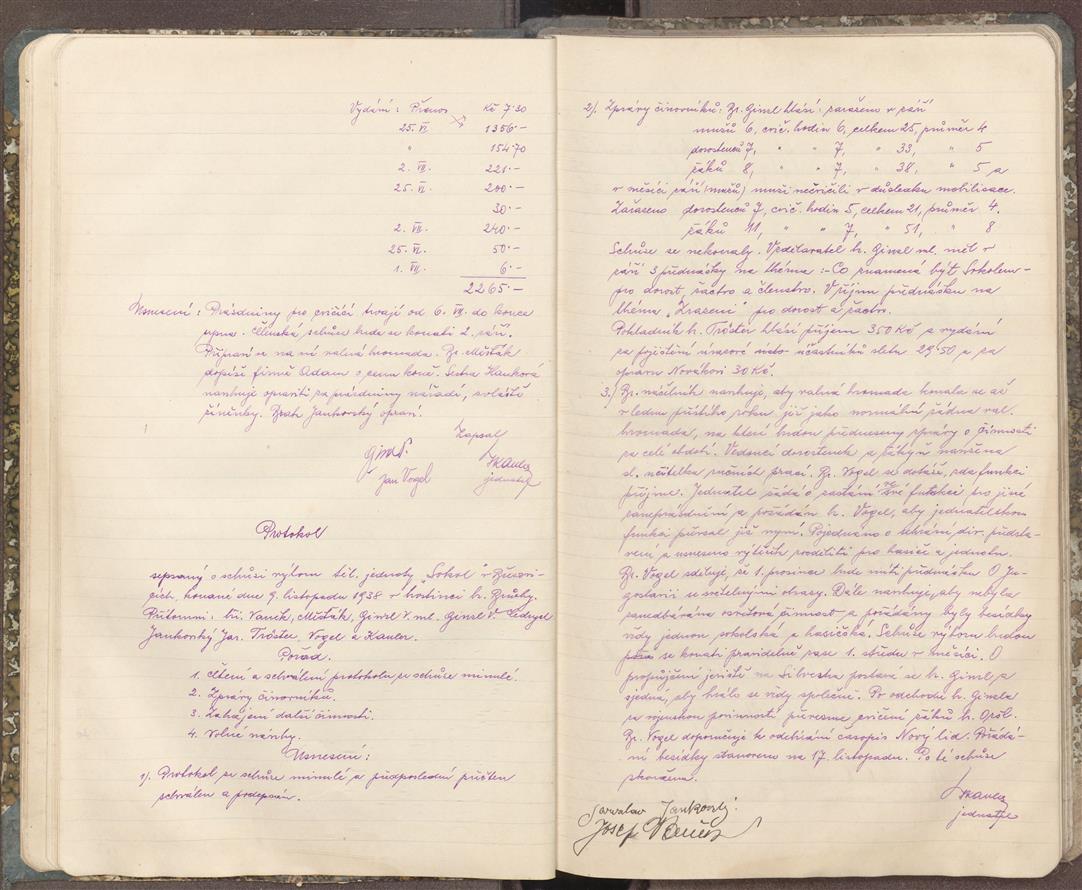 Vydání: Přenos Kč 7·30
25. VI. 1356·–
" 154·70
2. VII. 221·–
25. VI. 200·–
30·–
2. VII. 240·–
25. VI. 50·–
1. VII. 6·–
2265·–
Usnesení: Prázdniny pro cvičící trvají od 6. VII. do konce
srpna. Členská schůze bude se konati 2. září.
Připraví se na ni valná hromada. Br. Mišťák
dopíše firmě Adam o cenu koně. Sestra Hanková
navrhuje opraviti za prázdniny nářadí, zvláště
činěnky. Bratr Jankovský opraví.
Zapsal
Ginzl. JKanler
Jan Vogel jednatel
Protokol
sepsaný o schůzi výboru těl. jednoty "Sokol" v Březovi-
cích, konané dne 9. listopadu 1938 v hostinci br. Hrubý.
Přítomni: bři. Vaněk, Mišťák, Ginzl V. ml. Ginzl V. Ledvyl
Jankovský Jar. Tröster, Vogel a Kanler.
Pořad.
1. Čtení a schválení protokolu ze schůze minulé.
2. Zprávy činovníků.
3. Zahájení další činnosti.
4. Volné návrhy.
Usnesení:
1). Protokol ze schůze minulé a předposlední přečten
schválen a podepsán.
2). Zprávy činovníků: Br. Ginzl hlásí: zařazeno v září
mužů 6, cvič. hodin 6, celkem 25, průměr 4
dorostenců 7, " " 7, " 33, " 5
žáků 8, " " 7, " 38, " 5 a
v měsíci září (mužů) muži necvičili v důsledku mobilisace.
Zařazeno dorostenců 7, cvič. hodin 5, celkem 21, průměr 4.
žáků 11, " " 7, " 51, " 8
Schůze se nekonaly. Vzdělavatel br. Ginzl ml. měl v
září 3 přednášky na thema :– Co znamená být Sokolem –
pro dorost žactvo a členstvo. V říjnu přednášku na
thema "Zrazeni" pro dorost a žactvo.
Pokladník br. Tröster hlásí příjem 350 Kč a vydání
za pojištění úrazové účastníků sletu 29·50 a za
opravu Novákovi 30 Kč.
3.) Br. náčelník navrhuje, aby valná hromada konala se až
v lednu příštího roku již jako normální řádná val.
hromada, na které budou předneseny zprávy o činnosti
za celé období. Vedoucí dorostenek a žákyň navržena
sl. učitelka ručních prací. Br. Vogel se dotáže, zda funkci
přijme. Jednatel žádá o zastání své funkce pro jiné
zaneprázdnění a požádán br. Vogel, aby jednatelskou
funkci převzal již nyní. Pojednáno o sehrání div. předsta-
vení a usneseno výtěžek rozděliti pro hasiče a jednotu.
Br. Vogel sděluje, že 1. prosince bude míti přednášku O Ju-
goslavii se světelnými obrazy. Dále navrhuje, aby nebyla
zanedbávána osvětová činnost a pořádány byly besídky
vždy jednou sokolská a hasičská. Schůze výboru budou
se konati pravidelně zase 1. středu v měsíci. O
propůjčení jeviště na Silvestra postará se br. Ginzl, a
sjedná, aby hrálo se vždy společně. Po odchodu br. Ginzla
za vojenskou povinností převezme cvičení žáků br. Opöl.
Br. Vogel doporučuje k odebírání časopis Nový lid. Pořádá-
ní besídky stanoveno na 17. listopadu. Po té schůze
skončena.
JKanler
jednatel
Jaroslav Jankovský.
Josef Vaněk